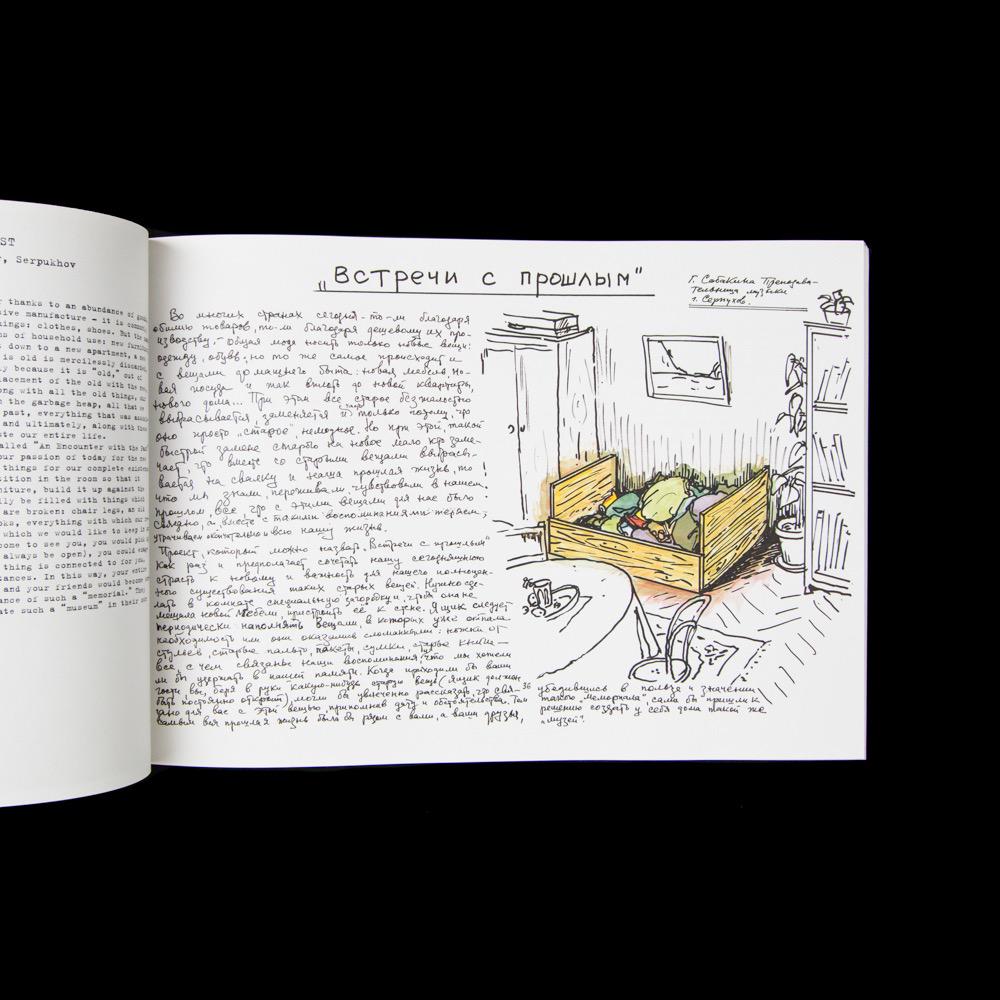 ST
, Serpukhov
r thanks to an abundance of goods
sive manufacture - it is commonly
ings: clothes, shoes. But the same
ms of household use: new furniture
t down to a new apartment, a new
is old is mercilessly discarded
y because it is "old," out of
lacement of the old with the new
ong with all the old things, our
the garbage heap, all that we
past, everything that was associated
and ultimately, along with these
te our entire life.
alled "An Encounter with the Past"
our passion of today for the new
things for our complete existence
sition in the room so that it
niture, build it up against the
ly be filled with things which
are broken: chair legs, an old
oks, everything with which our re
which we would like to keep in ou
come to see you, you would pick u
always be open), you could enga
thing is connected to for you,
tances. In this way, your entire
and your friends would become co
ance of such a "memorial." They
ate such a "museum" in their own
„Встречи с прошлым"
Г. Собакина Препода-
тельница музыки
г. Серпухов.
Во многих странах сегодня - то-ли благодаря
обилию товаров, то-ли благодаря дешевому их про-
изводству, - общая мода носить только новые вещи:
одежду, обувь. но то же самое происходит и
с вещами домашнего быта: новая мебель, но-
вая посуда и так вплоть до новой квартиры,
нового дома... При этом все старое безжалостно
выбрасывается, заменяется и только потому, что
оно просто „старое" немодное. Но при этой, такой
быстрой замене старого на новое мало кто заме-
чает, что вместе со старыми вещами выбрасы-
вается на свалку и наша прошлая жизнь, то
что мы знали, переживали, чувствовали в нашем
прошлом, все, что с этими вещами для нас было
связано, и вместе с такими воспоминаниями теряем,
утрачиваем окончательно и всю нашу жизнь.
Проект, который можно назвать „Встречи с прошлым"
как раз и предполагает сочетать нашу сегодняшнюю
страсть к новому и важность для нашего полноцен-
ного существования таких старых вещей. Нужно сде-
лать в комнате специальную загородку и, чтоб она не
мешала новой мебели, пристроить её к стене. Ящик следует
периодически наполнять вещами, в которых уже отпала
необходимость или они оказались сломанными: ножки от
стульев, старое пальто, пакеты, сумки, старые книги -
все с чем связаны наши воспоминания, что мы хотели
ли бы удержать в нашей памяти. Когда приходили бы ваши
гости вы, беря в руки какую-нибудь старую вещь (ящик должен
быть постоянно открыт) могли бы увлеченно рассказать, что свя-
зано для вас с этой вещью, припоминая дату и обстоятельства. Тем
самым вся прошлая жизнь была бы рядом с вами, а ваши друзья,
36
убедившись в пользе и значении
такого „мемориала", сами бы пришли к
решению создать у себя дома такой же
„музей".